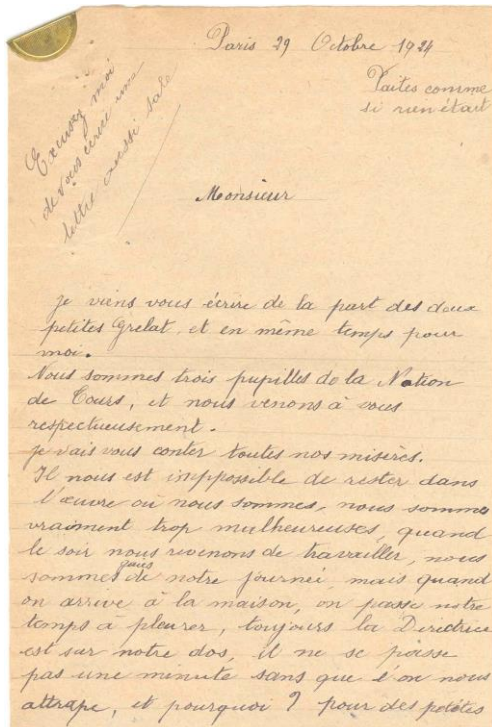 Paris 29 Octobre 1924
Faites comme
si rien était
Excusez moi
de vous écrire une
lettre aussi sale
Monsieur
je viens vous écrire de la part des deux
petites Grelat, et en même temps pour
moi.
Nous sommes trois pupilles de la Nation
de Tours, et nous venons à vous
respectueusement.
je vais vous conter toutes nos misères.
Il nous est impossible de rester dans
l'œuvre où nous sommes, nous sommes
vraiment trop malheureuses, quand
le soir nous revenons de travailler, nous
sommes gaies de notre journeé, mais quand
on arrive à la maison, on passe notre
temps à pleurer, toujours la Directrice
est sur notre dos, il ne se passe
pas une minute sans que l'on nous
attrape, et pourquoi ? pour des petites